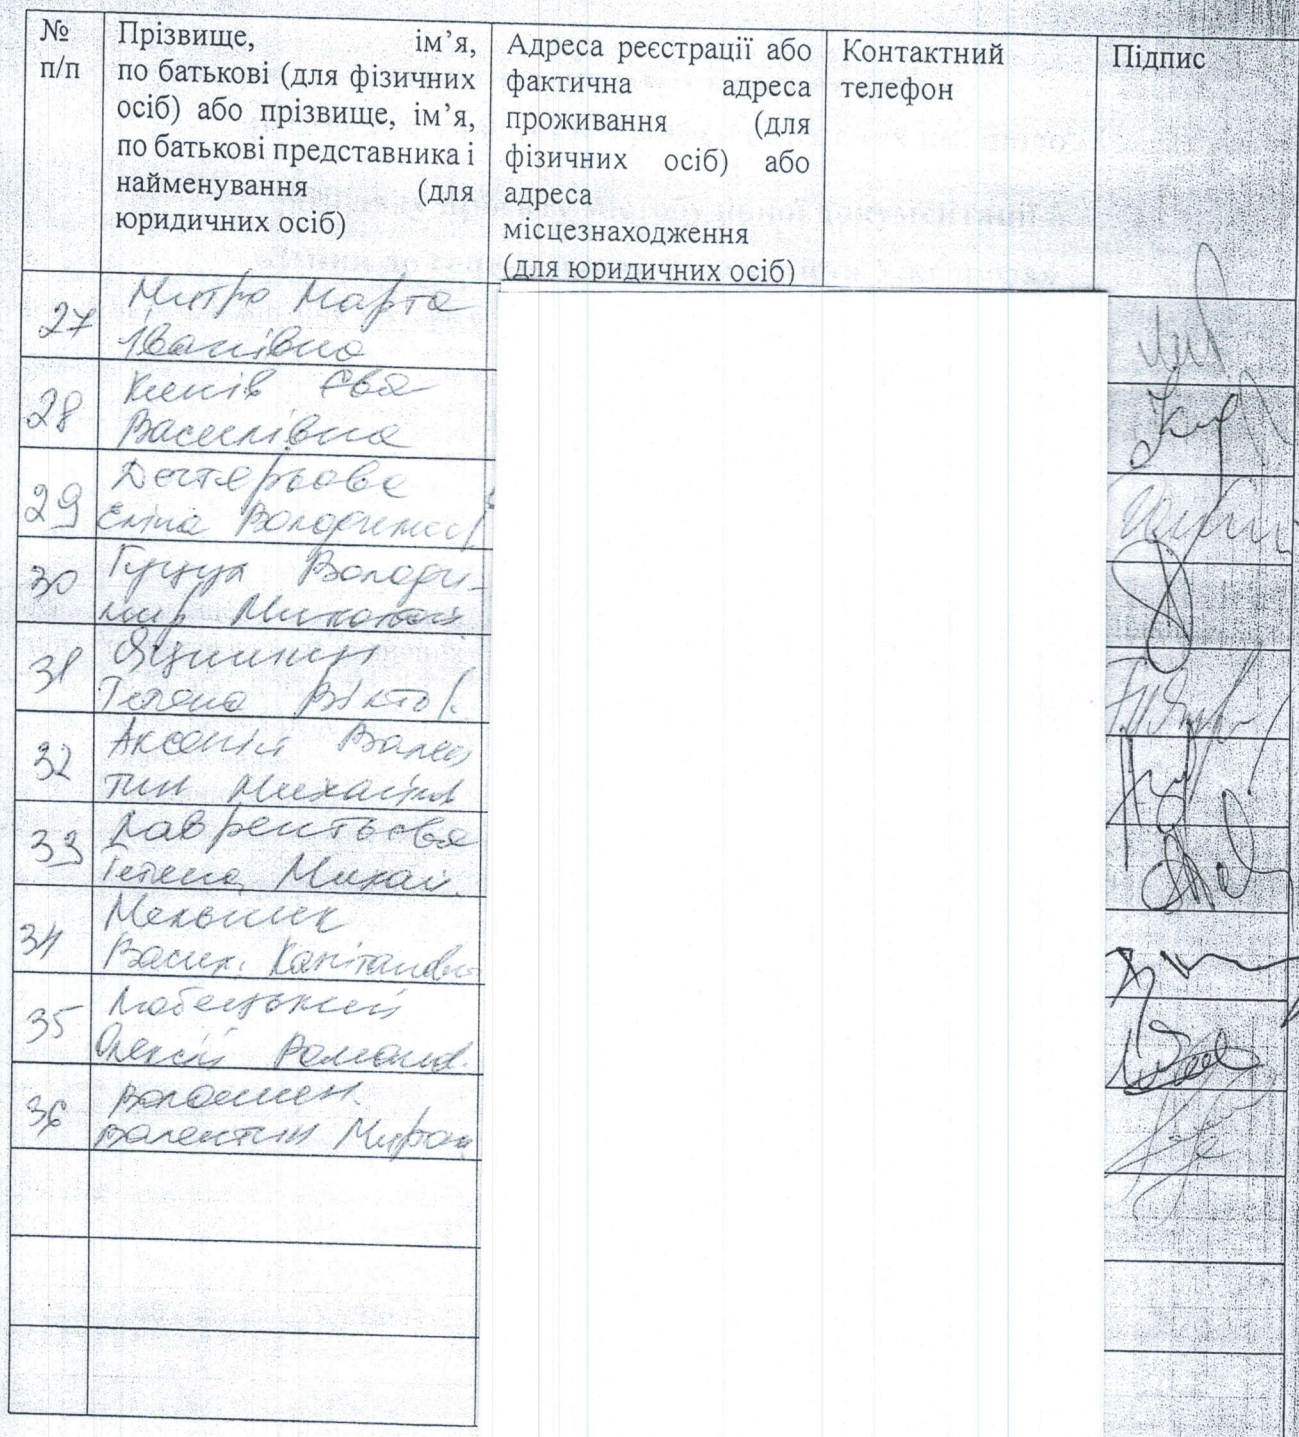 № п/п
Прізвище, ім’я,
по батькові (для фізичних
осіб) або прізвище, ім’я,
по батькові представника і
найменування (для
юридичних осіб)
Адреса реєстрації або
фактична адреса
проживання (для
фізичних осіб) або
адреса
місцезнаходження
(для юридичних осіб)
Контактний
телефон
Підпис
27
Митро Марта
Іванівна
28
Єва
Василівна
29
Дегтярьова
Еліна Володимир
30
Гуцул Володи-
мир Микол
31
Яцишин
Тетяна Віктор.
32
Аксанін Вален
тин Михайл
33
Лаврентьєва
Тетяна Михай.
34
Мельник
Васил. Капітанов
35
Лобецький
Олексій Роман.
36
Волошин
Валентин Мирон